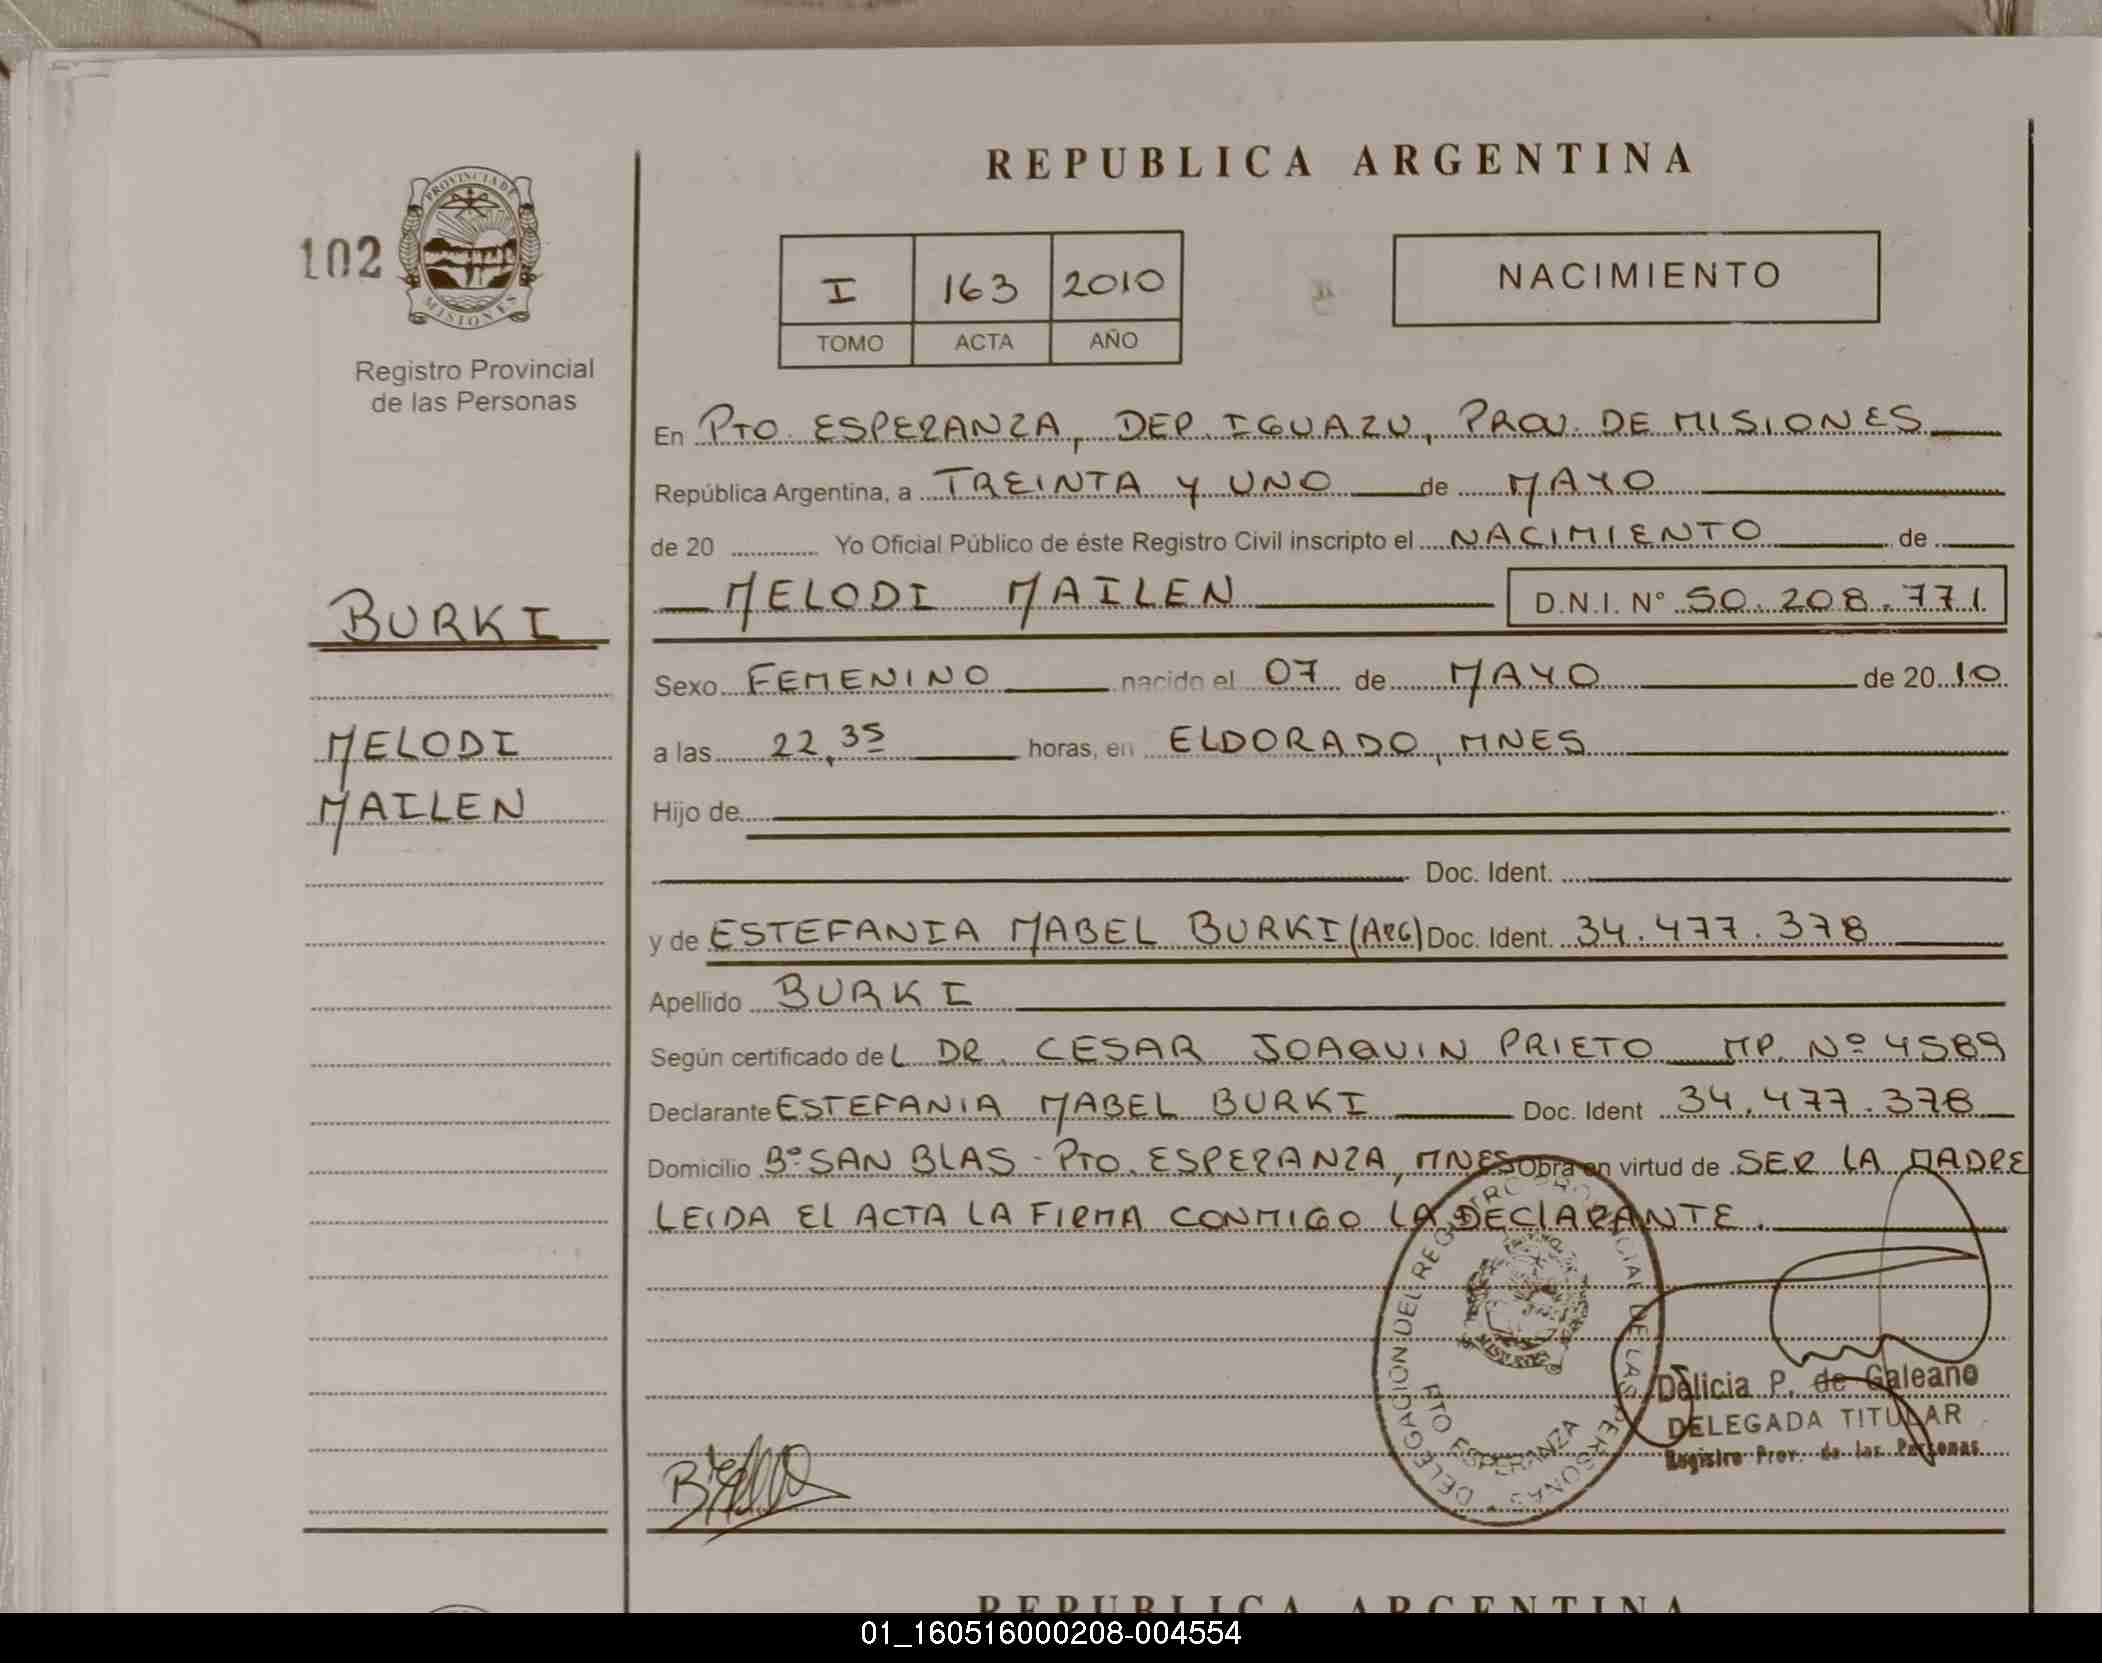 REPUBLICA ARGENTINA
102
PROVINCIA DE MISIONES
Registro Provincial
de las Personas
I 163 2010
TOMO ACTA AÑO
NACIMIENTO
En PTO. ESPERANZA, DEP. IGUAZU, PROV. DE MISIONES
República Argentina, a TREINTA Y UNO de MAYO
de 20 Yo Oficial Público de éste Registro Civil inscripto el NACIMIENTO de
MELODI MAILEN D.N.I. N° 50.208.771
BURKI
MELODI
MAILEN
Sexo FEMENINO nacido el 07 de MAYO de 2010
a las 22,35 horas, en ELDORADO, MNES
Hijo de
Doc. Ident.
y de ESTEFANIA MABEL BURKI (ARG) Doc. Ident. 34.477.378
Apellido BURKI
Según certificado deL DR. CESAR JOAQUIN PRIETO MP. Nº 4589
Declarante ESTEFANIA MABEL BURKI Doc. Ident 34.477.378
Domicilio Bº SAN BLAS - PTO. ESPERANZA, MNES Obra en virtud de SER LA MADRE
LEIDA EL ACTA LA FIRMA CONMIGO LA DECLARANTE.
DELEGACION DEL REGISTRO PROVINCIAL DE LAS PERSONAS
PTO ESPERANZA
MISIONES
Delicia P. de Galeano
DELEGADA TITULAR
Registro Prov. de las Personas
REPUBLICA ARGENTINA
01_160516000208-004554